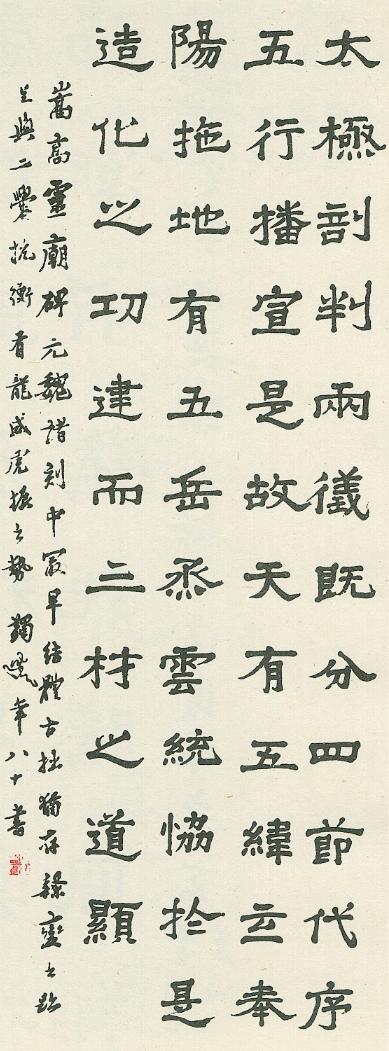 太極剖判兩儀既分四節代序
五行播宣是故天有五緯主奉
陽拖地有五岳烝雲統恊於是
造化之功建而三材之道顯
嵩高靈廟碑元魏諸刻中冣早結體古拙猶存隸變之跡
足與二爨抗衡有龍威虎振之勢 蠲年八十書